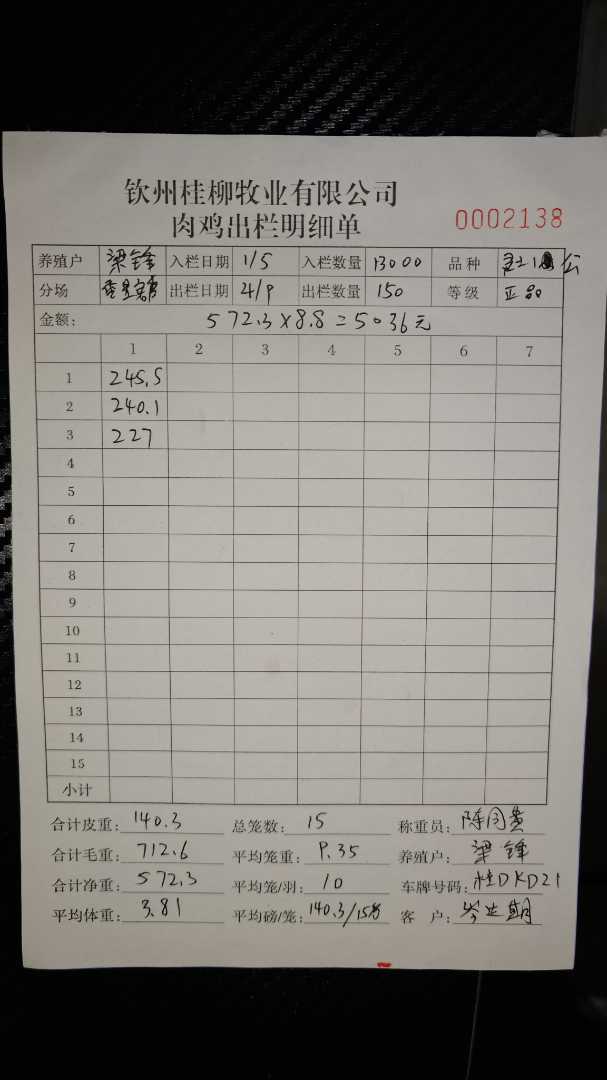 钦州桂柳牧业有限公司
肉鸡出栏明细单
0002138
养殖户 梁锋 入栏日期 1/5 入栏数量 13000 品种 公
分场 出栏日期 24/9 出栏数量 150 等级 正品
金额: 572.3×8.8=5036元
1 2 3 4 5 6 7
1 245.5
2 240.1
3 227
4
5
6
7
8
9
10
11
12
13
14
15
小计
合计皮重: 140.3 总笼数: 15 称重员:
合计毛重: 712.6 平均笼重: 9.35 养殖户: 梁锋
合计净重: 572.3 平均笼/羽: 10 车牌号码: 桂DKD21
平均体重: 3.81 平均磅/笼: 140.3/15 客 户: